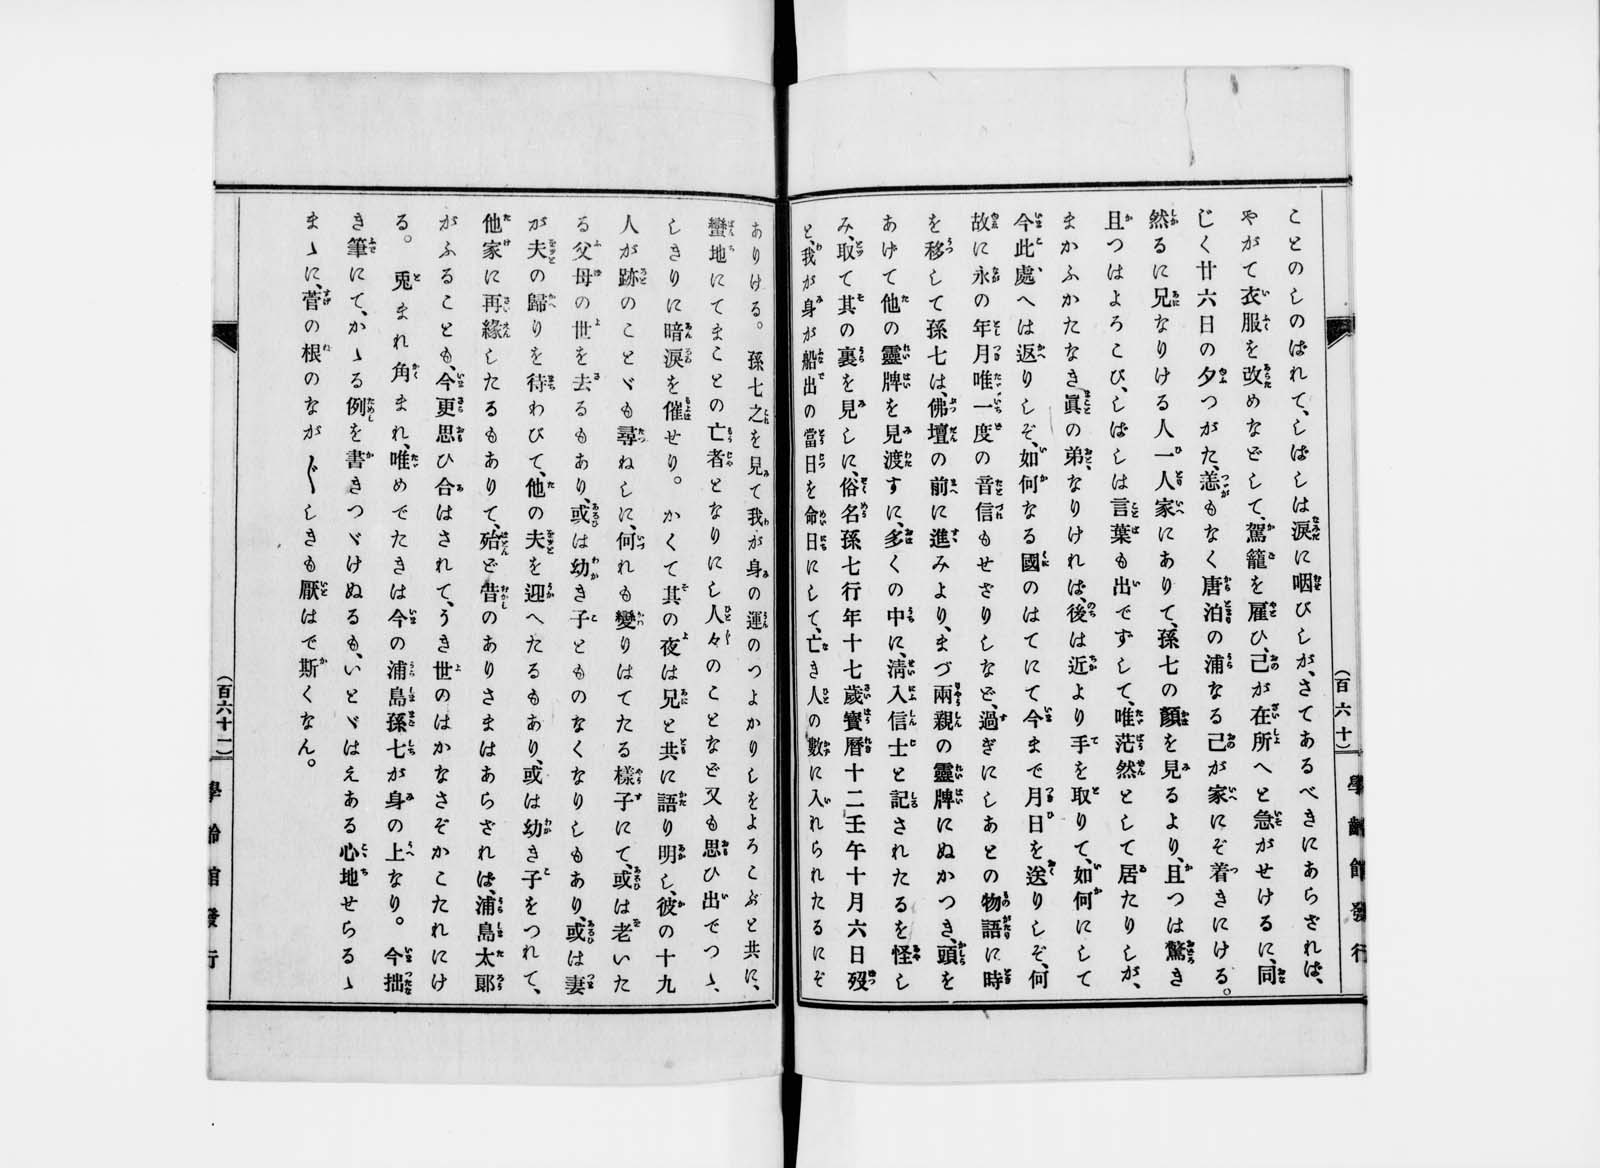 ことのしのばれて、しばしは淚に咽びしが、さてあるべきにあらざれば、
やがて衣服を改めなどして、駕籠を雇ひ、己が在所へと急がせけるに、同
じく廿六日の夕つがた、恙もなく唐泊の浦なる己が家にぞ着きにける。
然るに兄なりける人一人家にありて、孫七の顏を見るより、且つは驚き
且つはよろこび、しばしは言葉も出でずして、唯茫然として居たりしが、
まがふかたなき眞の弟、なりければ、後は近より手を取りて、如何にして
今此處へは返りしぞ、如何なる國のはてにて今まで月日を送りしぞ、何
故に永の年月唯一度の音信もせざりしなど、過ぎにしあとの物語に時
を移して孫七は、佛壇の前に進みより、まづ兩親の靈牌にぬかつき、頭を
あげて他の靈牌を見渡すに、多くの中に、淸入信士と記されたるを怪し
み、取て其の裏を見しに、俗名孫七行年十七歲寶曆十二壬午十月六日歿
と、我が身が船出の當日を命日にして、亡き人の數に入れられたるにぞ
(百六十)
學齡館發行
ありける。孫七之を見て我が身の運のつよかりしをよろこぶと共に、
蠻地にてまことの亡者となりにし人々のことなど又も思ひ出でつゝ、
しきりに暗淚を催せり。かくて其の夜は兄と共に語り明し、彼の十九
人が跡のことゞも尋ねしに、何れも變りはてたる樣子にて、或は老いた
る父母の世を去るもあり、或は幼き子とものなくなりしもあり、或は妻
が夫の歸りを待わびて、他の夫を迎へたるもあり、或は幼き子をつれて、
他家に再緣したるもありて、殆ど昔のありさまはあらざれば、浦島太郞
がふることも、今更思ひ合はされて、うき世のはかなさぞかこたれにけ
る。兎まれ角まれ、唯めでたきは今の浦島孫七が身の上なり。今拙
き筆にて、かゝる例を書きつゞけぬるも、いとゞはえある心地せらるゝ
まゝに、菅の根のなが〴〵しきも厭はで斯くなん。
(百六十一)
學齡館發行